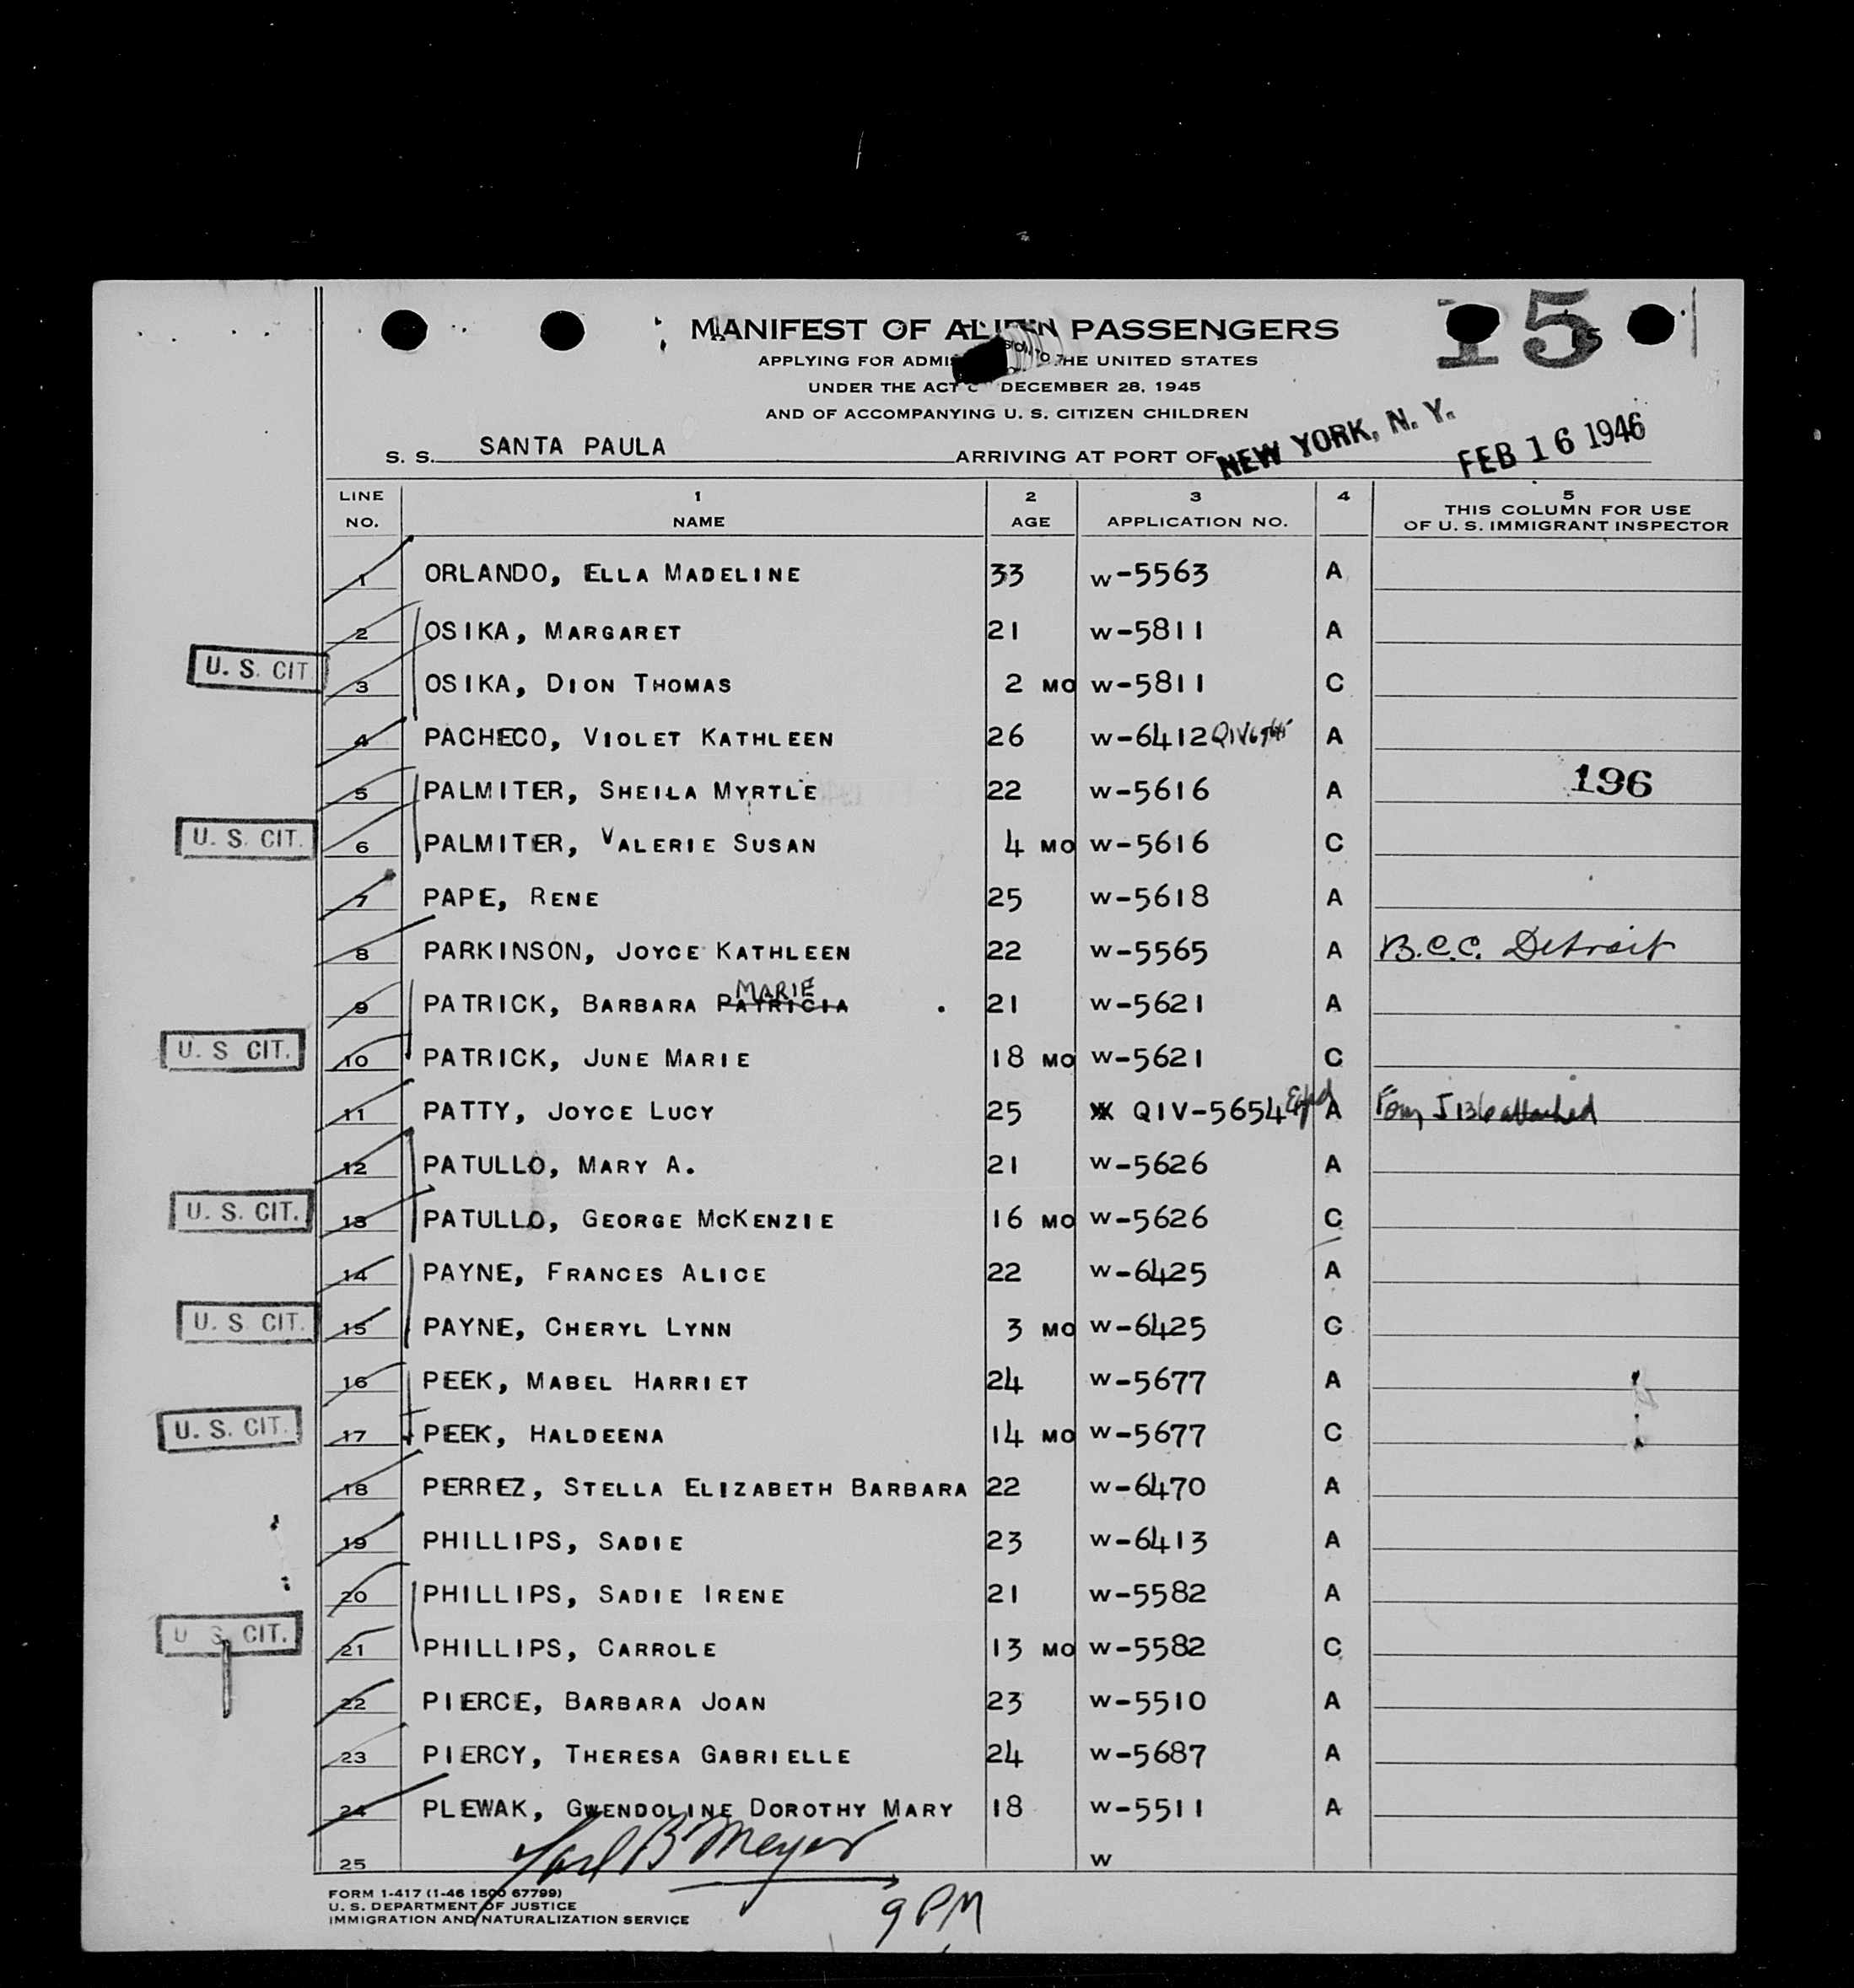 15
15
MANIFEST OF ALIEN PASSENGERS
APPLYING FOR ADMISSION TO THE UNITED STATES
UNDER THE ACT OF DECEMBER 28, 1945
AND OF ACCOMPANYING U. S. CITIZEN CHILDREN
S. S. SANTA PAULA ARRIVING AT PORT OF NEW YORK, N. Y. FEB 16 1946
LINE NO. 1 NAME 2 AGE 3 APPLICATION NO. 4 5 THIS COLUMN FOR USE OF U. S. IMMIGRANT INSPECTOR
1 ORLANDO, ELLA MADELINE 33 W-5563 A
2 OSIKA, MARGARET 21 W-5811 A
U. S. CIT 3 OSIKA, DION THOMAS 2 MO W-5811 C
4 PACHECO, VIOLET KATHLEEN 26 W-6412 A
5 PALMITER, SHEILA MYRTLE 22 W-5616 A 196
U. S. CIT. 6 PALMITER, VALERIE SUSAN 4 MO W-5616 C
7 PAPE, RENE 25 W-5618 A
8 PARKINSON, JOYCE KATHLEEN 22 W-5565 A B.C.C. Detroit
9 PATRICK, BARBARA PATRICIA MARIE 21 W-5621 A
U. S CIT. 10 PATRICK, JUNE MARIE 18 MO W-5621 C
11 PATTY, JOYCE LUCY 25 QIV-5654 A Form I 136 attached
12 PATULLO, MARY A. 21 W-5626 A
U. S. CIT. 13 PATULLO, GEORGE MCKENZIE 16 MO W-5626 C
14 PAYNE, FRANCES ALICE 22 W-6425 A
U. S. CIT. 15 PAYNE, CHERYL LYNN 3 MO W-6425 C
16 PEEK, MABEL HARRIET 24 W-5677 A
U. S. CIT. 17 PEEK, HALDEENA 14 MO W-5677 C
18 PERREZ, STELLA ELIZABETH BARBARA 22 W-6470 A
19 PHILLIPS, SADIE 23 W-6413 A
20 PHILLIPS, SADIE IRENE 21 W-5582 A
U S. CIT. 21 PHILLIPS, CARROLE 13 MO W-5582 C
22 PIERCE, BARBARA JOAN 23 W-5510 A
23 PIERCY, THERESA GABRIELLE 24 W-5687 A
24 PLEWAK, GWENDOLINE DOROTHY MARY 18 W-5511 A
25 W
B Meyer
9 PM
FORM 1-417 (1-46 1500 67799)
U. S. DEPARTMENT OF JUSTICE
IMMIGRATION AND NATURALIZATION SERVICE